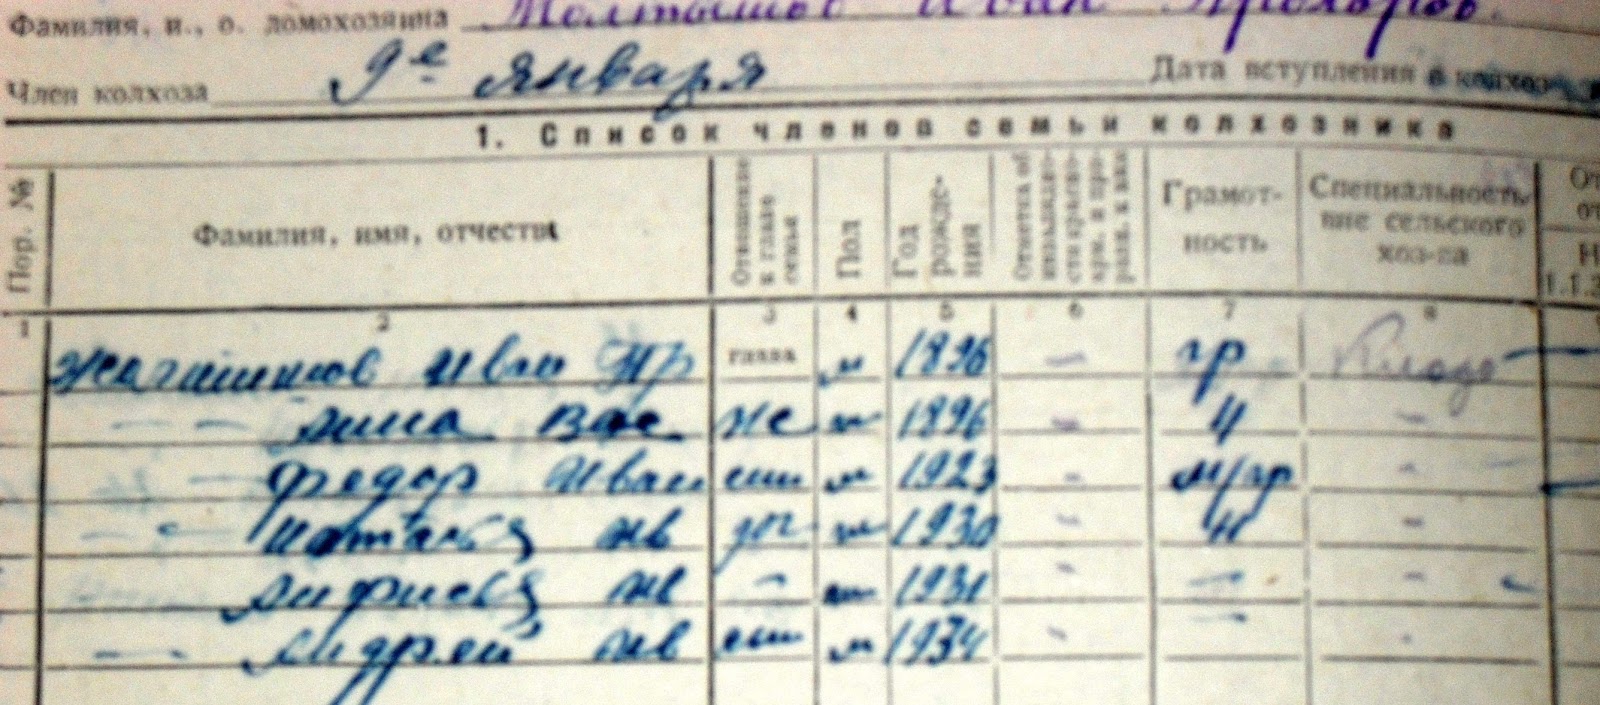 Фамилия, и., о. домохозяина Иван Прохоров.
Член колхоза 9е января Дата вступления в колхоз
1. Список членов семьи колхозника
Пор. № Фамилия, имя, отчество Отношение к главе семьи Пол Год рождения Грамотность Специальность вне сельского хоз-ва
1 2 3 4 5 6 7 8
Иван Пр глава м 1896 — гр
— — Анна Вас же ж 1896 — н —
— Федор Иван сын м 1923 - м/гр -
— — Наталья Ив доч ж 1930 - н -
Ив — ж 1931 - — -
— Андрей Ив сын м 1934 - — -